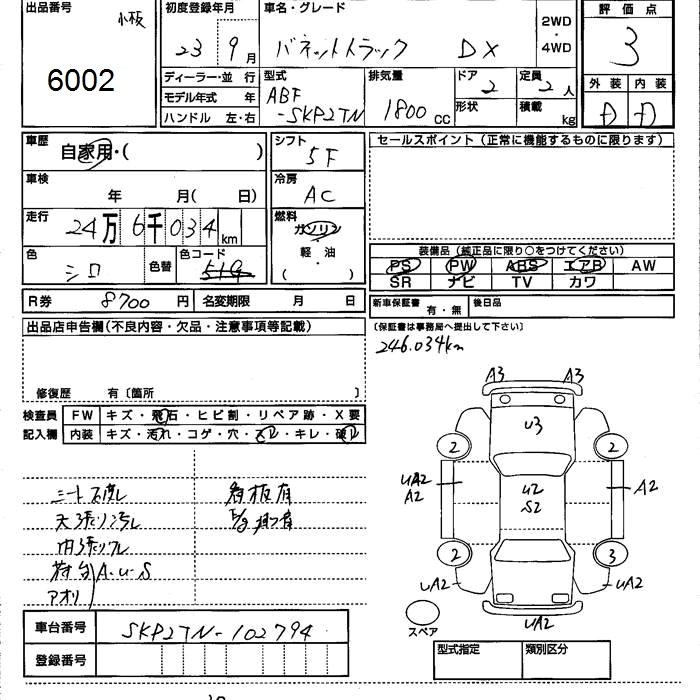 出品番号 小板
6002
初度登録年月
23 9月
車名・グレード
バネットトラック DX
2WD
・
4WD
評価点
3
外装 内装
D D
ディーラー・並 行
モデル年式 年
ハンドル 左・右
型式
ABF
-SKP2TN
排気量
1800 cc
ドア 2
形状
定員 2人
積載 kg
車歴
自家用・( )
車検
年 月( 日)
走行
24万6千034km
色
シロ
色替
色コード
R券 8700円
名変期限 月 日
シフト
5F
冷房
AC
燃料
ガソリン
・
軽油
・
( )
セールスポイント(正常に機能するものに限ります)
装備品(純正品に限り○をつけてください)
PS PW ABS エアB AW
SR ナビ TV カワ
新車保証書 有・無 後日品
(保証書は事務局へ提出して下さい)
246.034km
出品店申告欄(不良内容・欠品・注意事項等記載)
修復歴 有〔箇所 〕
検査員 FW キズ・飛石・ヒビ割・リペア跡・X要
記入欄 内装 キズ・汚れ・コゲ・穴・スレ・キレ・破レ
シート破レ 看板有
天張り汚レ
内張りワレ
荷台 A.U.S
アオリ
車台番号 SKP2TN-102794
登録番号
A3 A3
U3
2 2
UA2
A2
U2
S2
A2
2 3
UA2 UA2
UA2
スペア
型式指定 類別区分